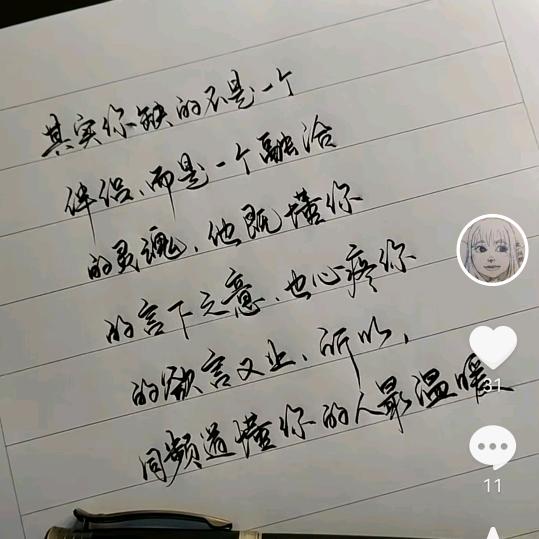 其实你缺的不是一个
伴侣、而是一个融洽
的灵魂、他既懂你
的言下之意、也心疼你
的欲言又止、所以，
同频道懂你的人最温暖
31
11